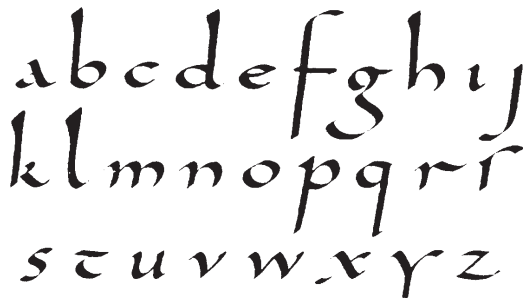 a b c d e f g h i j
k l m n o p q r ſ
s t u v w x y z